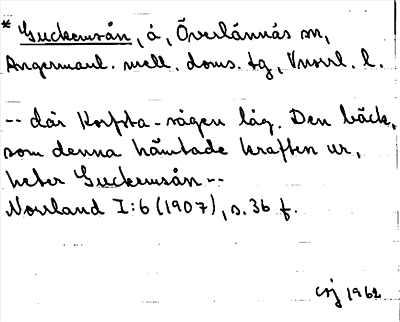 * Guckemsån, å, Överlännäs sn,
Ångermanl. mell. doms. tg, Vnorrl. l.
-- där Korpta-sågen låg. Den bäck,
som denna hämtade kraften ur,
heter Guckemsån --
Norrland I:6 (1907), s. 36 f.
1962